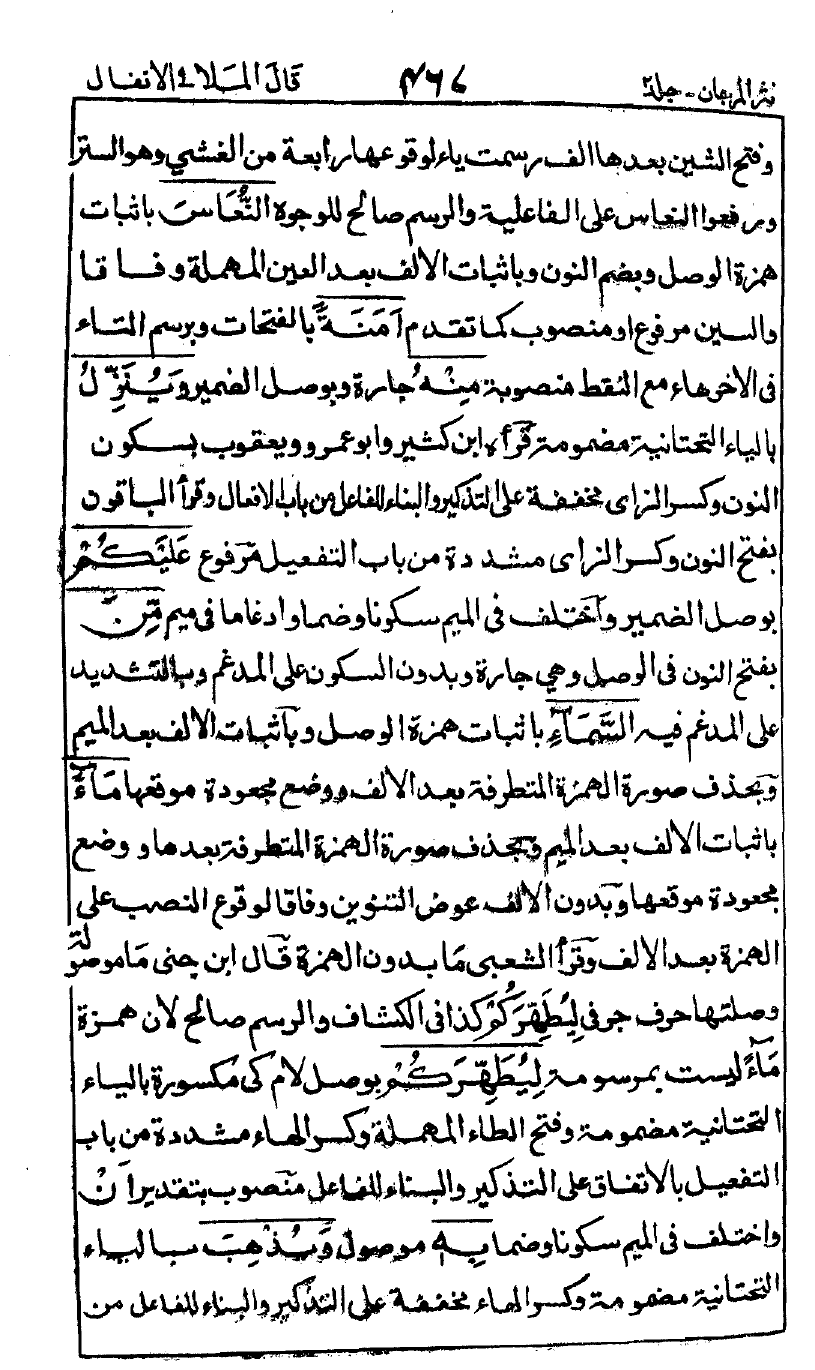 نثر المرجان - جلد٢ ٤٦٧ قال الملا ٩ الانفال
وفتح الشين بعدها الف رسمت ياء لوقوعها رابعة من الغشي وهو الستر
ورفعوا النعاس على الفاعلية والرسم صالح للوجوه النُّعَاسَ باثبات
همزة الوصل وبضم النون وباثبات الالف بعد العين المهملة وفاقا
والسين مرفوع او منصوب كما تقدم اَمَنَةً بالفتحات وبرسم التاء
فى الاخرهاء مع النقط منصوبة مِنْهُ جارة وبوصل الضمير وَيُنَزِّلُ
بالياء التحتانية مضمومة قرأه ابن كثير وابو عمرو ويعقوب بسكون
النون وكسر الزاى مخففة على التذكير والبناء للفاعل من باب الافعال وقرأ الباقون
بفتح النون وكسر الزاى مشددة من باب التفعيل مرفوع عَلَيْكُمْ
بوصل الضمير واختلف فى الميم سكونا وضما وادغاما فى ميم مِّنَ
بفتح النون فى الوصل وهي جارة وبدون السكون على المدغم وبالتشديد
على المدغم فيه السَّمَآءِ باثبات همزة الوصل وباثبات الالف بعد الميم
وبحذف صورة الهمزة المتطرفة بعد الالف ووضع مجعودة موقعها مَآءً
باثبات الالف بعد الميم وبحذف صورة الهمزة المتطرفة بعدها ووضع
مجعودة موقعها وبدون الالف عوض التنوين وفاقا لوقوع النصب على
الهمزة بعد الالف وقرأ الشعبى ما بدون الهمزة قال ابن جنى ما موصولة
وصلتها حرف جر فى لِيُطَهِّرَكُمْ كذا فى الكشاف والرسم صالح لان همزة
مَآءً ليست بمرسومة لِيُطَهِّرَكُمْ بوصل لام كى مكسورة بالياء
التحتانية مضمومة وفتح الطاء المهملة وكسر الهاء مشددة من باب
التفعيل بالاتفاق على التذكير والبناء للفاعل منصوب بتقدير اَنْ
واختلف فى الميم سكونا وضما بِهٖ موصول وَيُذْهِبَ بالياء
التحتانية مضمومة وكسر الهاء مخففة على التذكير والبناء للفاعل من